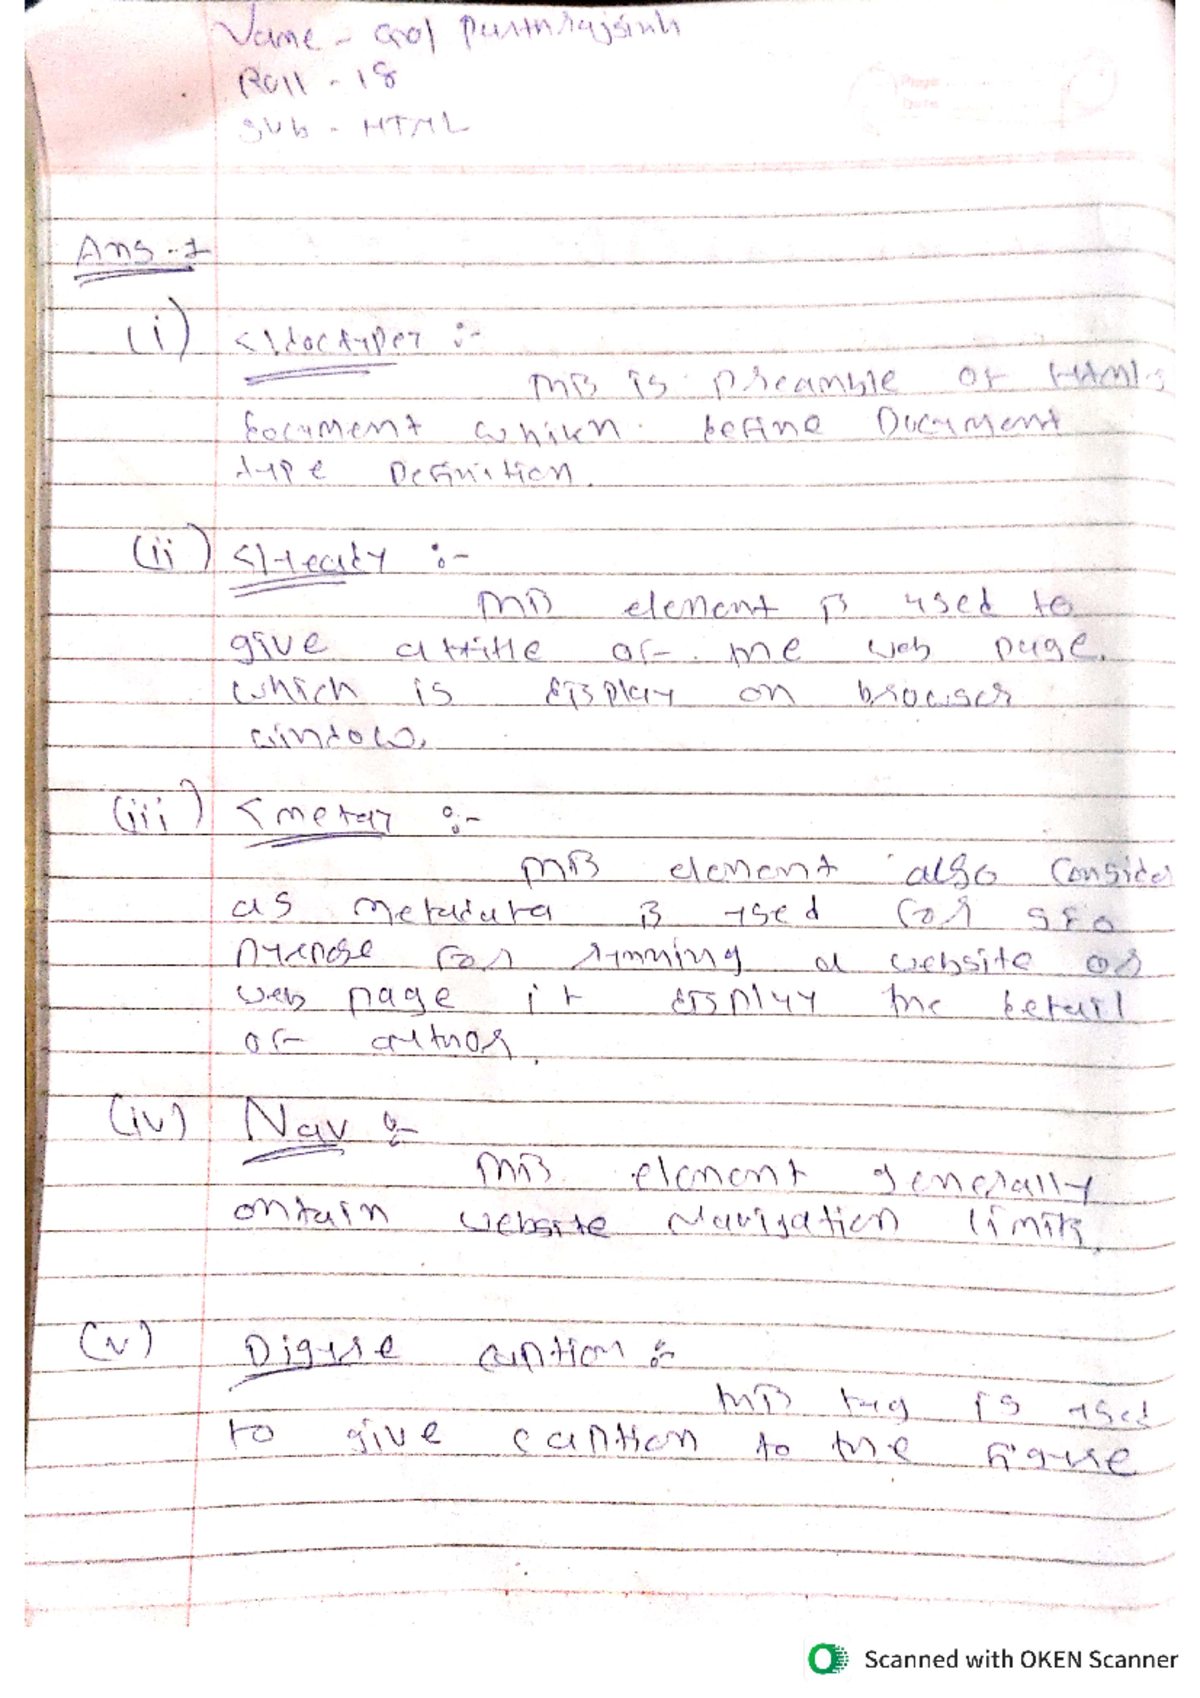 Name - Gol Parthrajsinh
Roll - 18
Sub - HTML
Page
Date
Ans-1
(i) <!doctype> :-
This is preamble of HTML
document which define Document
type Definition.
(ii) <Head> :-
This element is used to
give a title of the web page.
which is display on browser
window.
(iii) <meta> :-
This element also consider
as metadata is used for SEO
purpose for running a website or
web page it display the detail
of author.
(iv) Nav :-
This element generally
ontain website Navigation links.
(v) Figure caption :-
This tag is used
to give caption to the figure
Scanned with OKEN Scanner